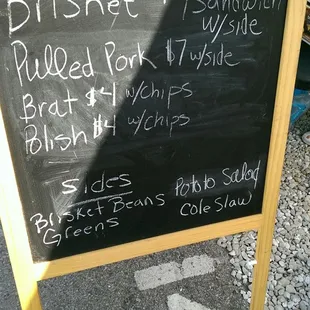 Brisket Sandwich
w/side
Pulled Pork $7 w/side
Brat $4 w/chips
Polish $4 w/chips
Sides
Brisket Beans Potato Salad
Greens Cole Slaw